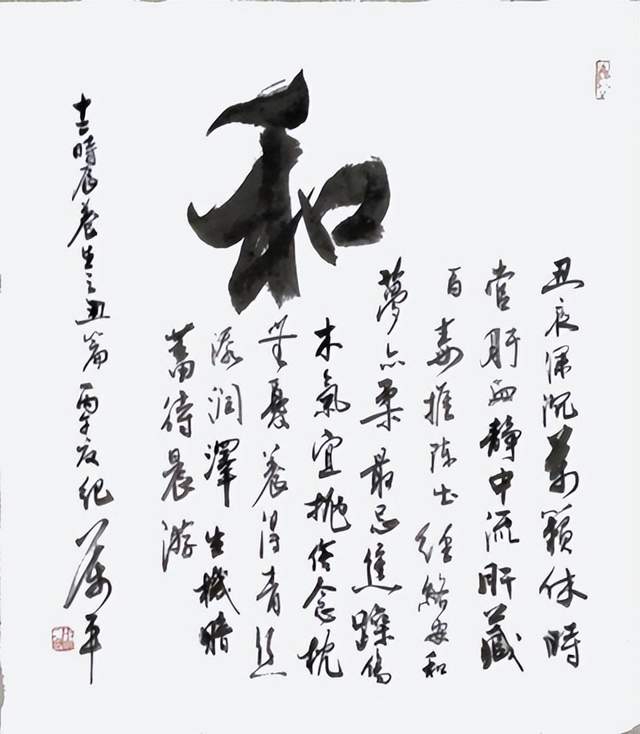 和
丑夜深沉萬籟休時
當肝血靜中流肝藏
百毒推陳出經絡安和
夢亦柔最忌焦躁傷
木氣宜抛俗念枕
無憂養得青絲
添潤澤生機暗
蓄待晨游
十二時辰養生之丑篇 丙午夏紀 平